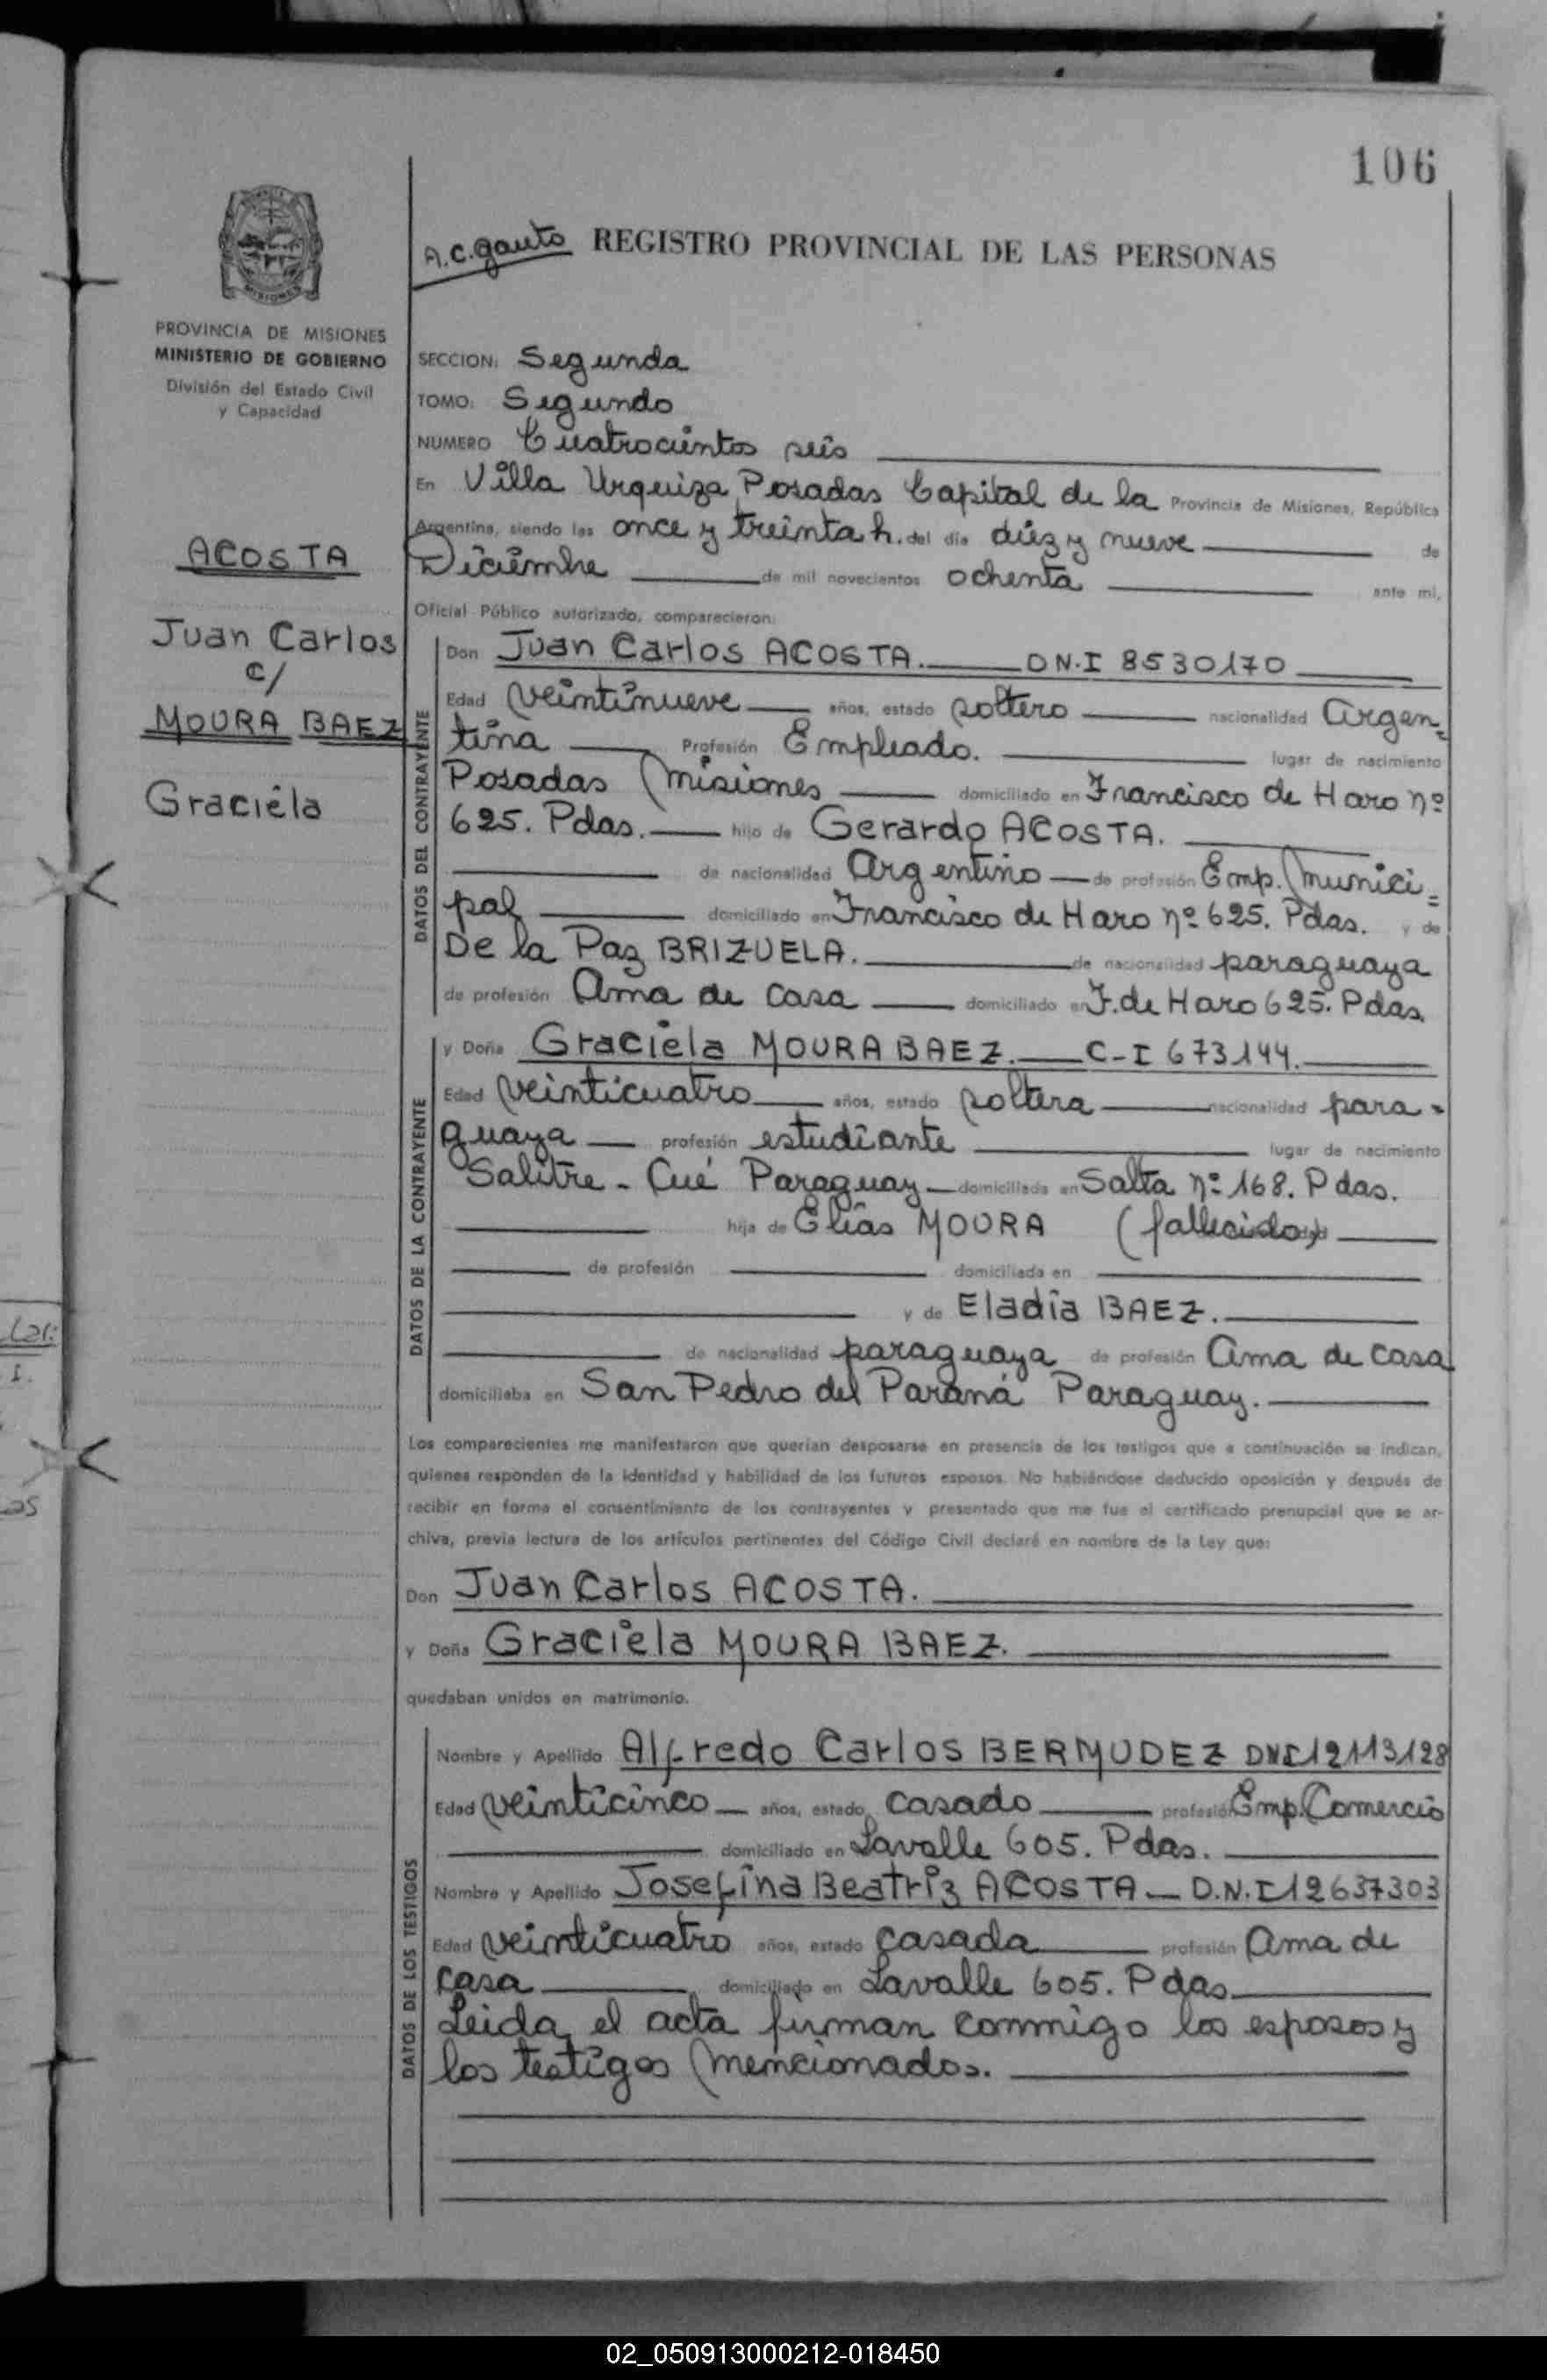 106
A.C. Gauto REGISTRO PROVINCIAL DE LAS PERSONAS
MISIONES
PROVINCIA DE MISIONES
MINISTERIO DE GOBIERNO
División del Estado Civil
y Capacidad
ACOSTA
Juan Carlos
c/
MOURA BAEZ
Graciela
SECCION: Segunda
TOMO: Segundo
NUMERO Cuatrocientos seis
En Villa Urquiza Posadas Capital de la Provincia de Misiones, República
Argentina, siendo las once y treinta h. del día diez y nueve de
Diciembre de mil novecientos ochenta ante mi,
Oficial Público autorizado, comparecieron:
DATOS DEL CONTRAYENTE
Don Juan Carlos ACOSTA. DN.I 8530170
Edad veintinueve años, estado soltero nacionalidad argen=
tina Profesión Empleado. lugar de nacimiento
Posadas Misiones domiciliado en Francisco de Haro nº
625. Pdas. hijo de Gerardo ACOSTA.
de nacionalidad Argentino de profesión Emp. Munici=
pal domiciliado en Francisco de Haro nº 625. Pdas. y de
De la Paz BRIZUELA. de nacionalidad paraguaya
de profesión Ama de casa domiciliado en F. de Haro 625. Pdas.
DATOS DE LA CONTRAYENTE
y Doña Graciela MOURA BAEZ. C-I 673144.
Edad veinticuatro años, estado soltera nacionalidad para-
guaya profesión estudiante lugar de nacimiento
Salitre - Cué Paraguay domiciliada en Salta nº 168. Pdas.
hija de Elías MOURA (fallecido)
de profesión domiciliada en
y de Eladia BAEZ.
de nacionalidad paraguaya de profesión Ama de casa
domiciliaba en San Pedro del Paraná Paraguay.
Los comparecientes me manifestaron que querían desposarse en presencia de los testigos que a continuación se indican,
quienes responden de la identidad y habilidad de los futuros esposos. No habiéndose deducido oposición y después de
recibir en forma el consentimiento de los contrayentes y presentado que me fue el certificado prenupcial que se ar-
chiva, previa lectura de los artículos pertinentes del Código Civil declaré en nombre de la Ley que:
Don Juan Carlos ACOSTA.
y Doña Graciela MOURA BAEZ.
quedaban unidos en matrimonio.
DATOS DE LOS TESTIGOS
Nombre y Apellido Alfredo Carlos BERMUDEZ DNI 12113128
Edad veinticinco años, estado casado profesión Emp. Comercio
domiciliado en Lavalle 605. Pdas.
Nombre y Apellido Josefina Beatriz ACOSTA D.N.I 12637303
Edad veinticuatro años, estado casada profesión Ama de
casa domiciliado en Lavalle 605. Pdas.
Leida el acta firman conmigo los esposos y
los testigos mencionados.
02_050913000212-018450